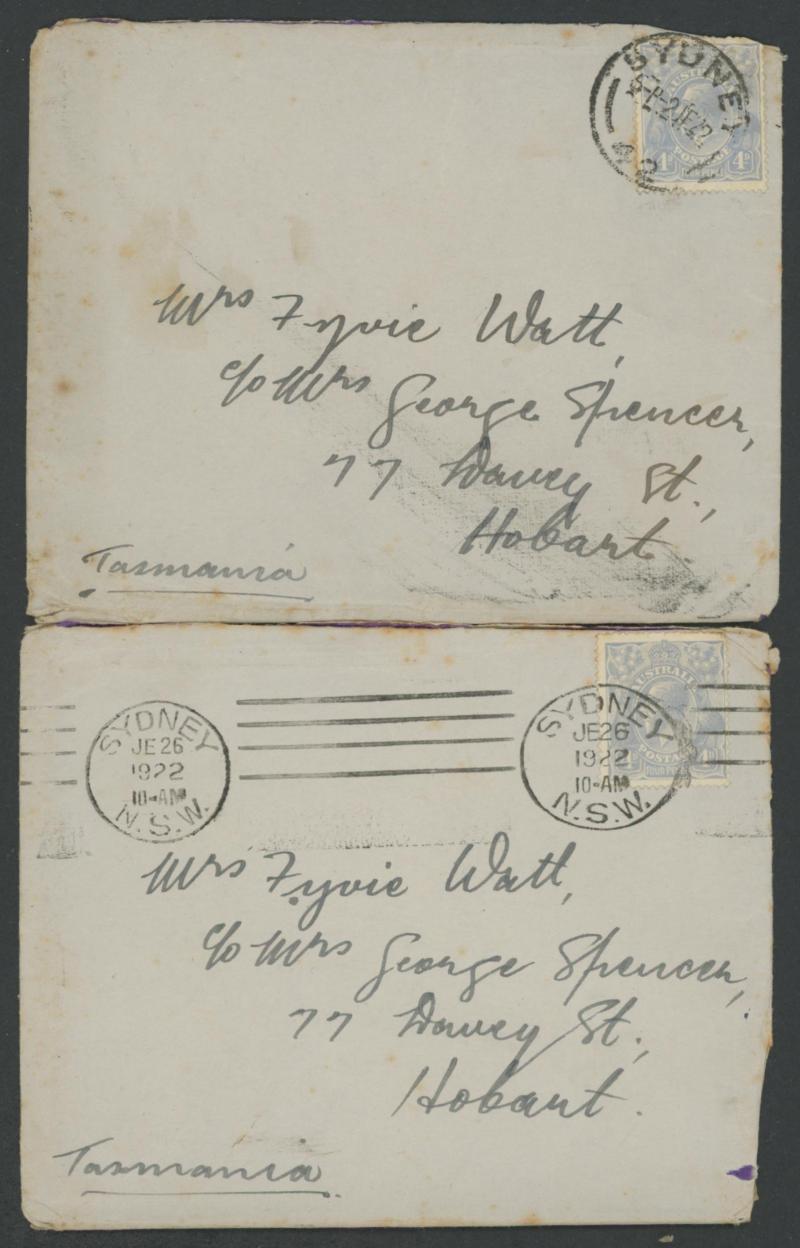 SYDNEY
42
AUSTRALIA
POSTAGE
4D 4D
Mrs Fyvie Watt,
c/o Mrs George Spencer,
77 Davey St.,
Hobart.
Tasmania
SYDNEY
JE 26
1922
10-AM
N.S.W.
SYDNEY
JE 26
1922
10-AM
N.S.W.
AUSTRALIA
POSTAGE
Mrs Fyvie Watt,
c/o Mrs George Spencer,
77 Davey St.,
Hobart.
Tasmania